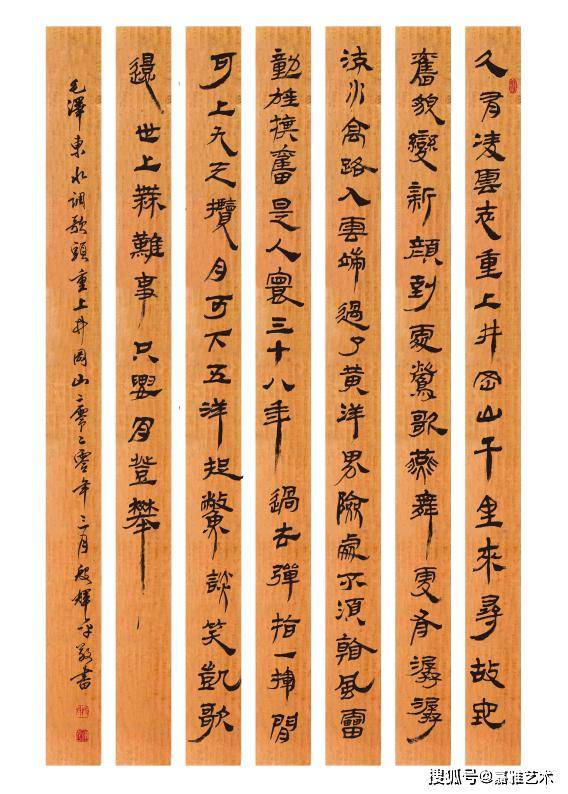 久有凌雲志重上井岡山千里來尋故地
舊貌變新顏到處鶯歌燕舞更有潺潺
流水高路入雲端過了黃洋界險處不須看風雷
動旌旗奮是人寰三十八年過去彈指一揮間
可上九天攬月可下五洋捉鱉談笑凱歌
還世上無難事只要肯登攀
毛澤東水調歌頭重上井岡山二零二零年三月殷輝平敬書
搜狐号@嘉雅艺术